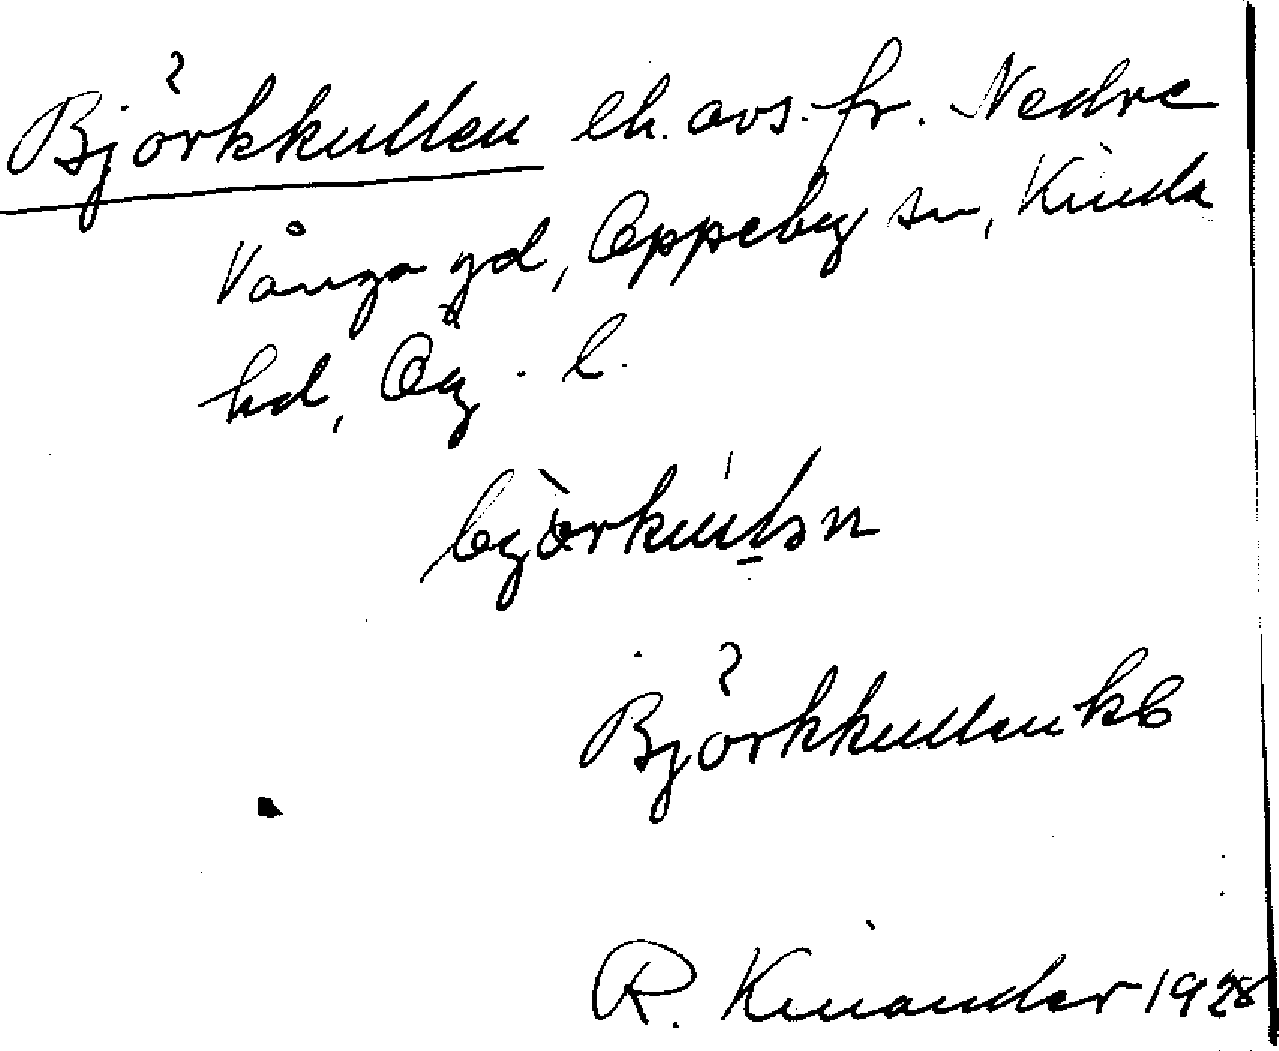 Björkkullen lh. avs. fr. Nedre
Vånga gd, Oppeby sn, Kinda
hd, Ög. l.
Björkkullen kb
R. Kinander 1928